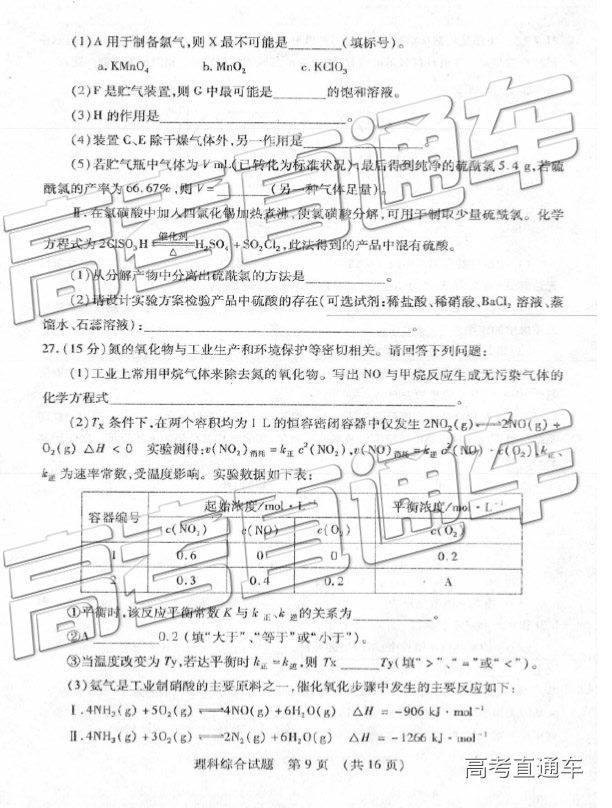 (1)A 用于制备氯气,则 X 最不可能是______(填标号)。
a. KMnO₄ b. MnO₂ c. KClO₃
(2)F 是贮气装置,则 G 中最可能是______的饱和溶液。
(3)H 的作用是____________________。
(4)装置 C、E 除干燥气体外,另一作用是
(5)若贮气瓶中气体为 V mL(已转化为标准状况),最后得到纯净的硫酰氯 5.4 g,若硫
酰氯的产率为 66.67%,则 V=______(另一种气体足量)。
Ⅱ.在氯磺酸中加入四氯化锡加热煮沸,使氯磺酸分解,可用于制取少量硫酰氯。化学
方程式为 2ClSO₃H 催化剂 △ H₂SO₄+SO₂Cl₂,此法得到的产品中混有硫酸。
(1)从分解产物中分离出硫酰氯的方法是____________。
(2)请设计实验方案检验产品中硫酸的存在(可选试剂:稀盐酸、稀硝酸、BaCl₂ 溶液、蒸
馏水、石蕊溶液):____________________。
27.(15 分)氮的氧化物与工业生产和环境保护等密切相关。请回答下列问题:
(1)工业上常用甲烷气体来除去氮的氧化物。写出 NO 与甲烷反应生成无污染气体的
化学方程式____________________。
(2)Tx 条件下,在两个容积均为 1 L 的恒容密闭容器中仅发生 2NO₂(g)⇌2NO(g)+
O₂(g) △H < 0 实验测得:v(NO₂)消耗=k正 c²(NO₂),v(NO)消耗=k逆 c²(NO)·c(O₂),k正、
k逆 为速率常数,受温度影响。实验数据如下表:
容器编号 起始浓度/mol·L⁻¹ 平衡浓度/mol·L⁻¹
c(NO₂) c(NO) c(O₂) c(O₂)
1 0.6 0 0 0.2
2 0.3 0.4 0.2 A
①平衡时,该反应平衡常数 K 与 k正、k逆 的关系为____________。
②A________0.2 (填“大于”、“等于”或“小于”)。
③当温度改变为 Ty,若达平衡时 k正=k逆,则 Tx______Ty(填“>”、“=”或“<”)。
(3)氨气是工业制硝酸的主要原料之一,催化氧化步骤中发生的主要反应如下:
Ⅰ.4NH₃(g)+5O₂(g)⇌4NO(g)+6H₂O(g) △H = −906 kJ·mol⁻¹
Ⅱ.4NH₃(g)+3O₂(g)⇌2N₂(g)+6H₂O(g) △H = −1266 kJ·mol⁻¹
理科综合试题 第 9 页 (共 16 页)
高考直通车
高考直通车
高考直通车